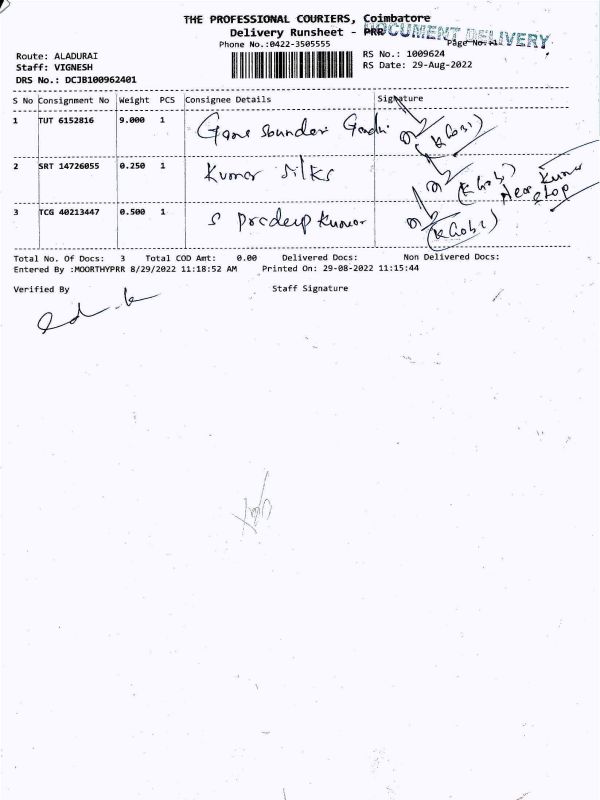 THE PROFESSIONAL COURIERS, Coimbatore
Delivery Runsheet - PRR
DOCUMENT DELIVERY
Phone No.:0422-3505555
Page No.:1
Route: ALADURAI
RS No.: 1009624
Staff: VIGNESH
RS Date: 29-Aug-2022
DRS No.: DCJB100962401
S No Consignment No Weight PCS Consignee Details Signature
1 TUT 6152816 9.000 1 Sounder Gandhi (K Gobi)
2 SRT 14726055 0.250 1 Kumar silks (K Gobi) Near Kumar
3 TCG 40213447 0.500 1 S Pradeep Kumar (K Gobi)
Total No. Of Docs: 3 Total COD Amt: 0.00 Delivered Docs: Non Delivered Docs:
Entered By :MOORTHYPRR 8/29/2022 11:18:52 AM Printed On: 29-08-2022 11:15:44
Verified By Staff Signature